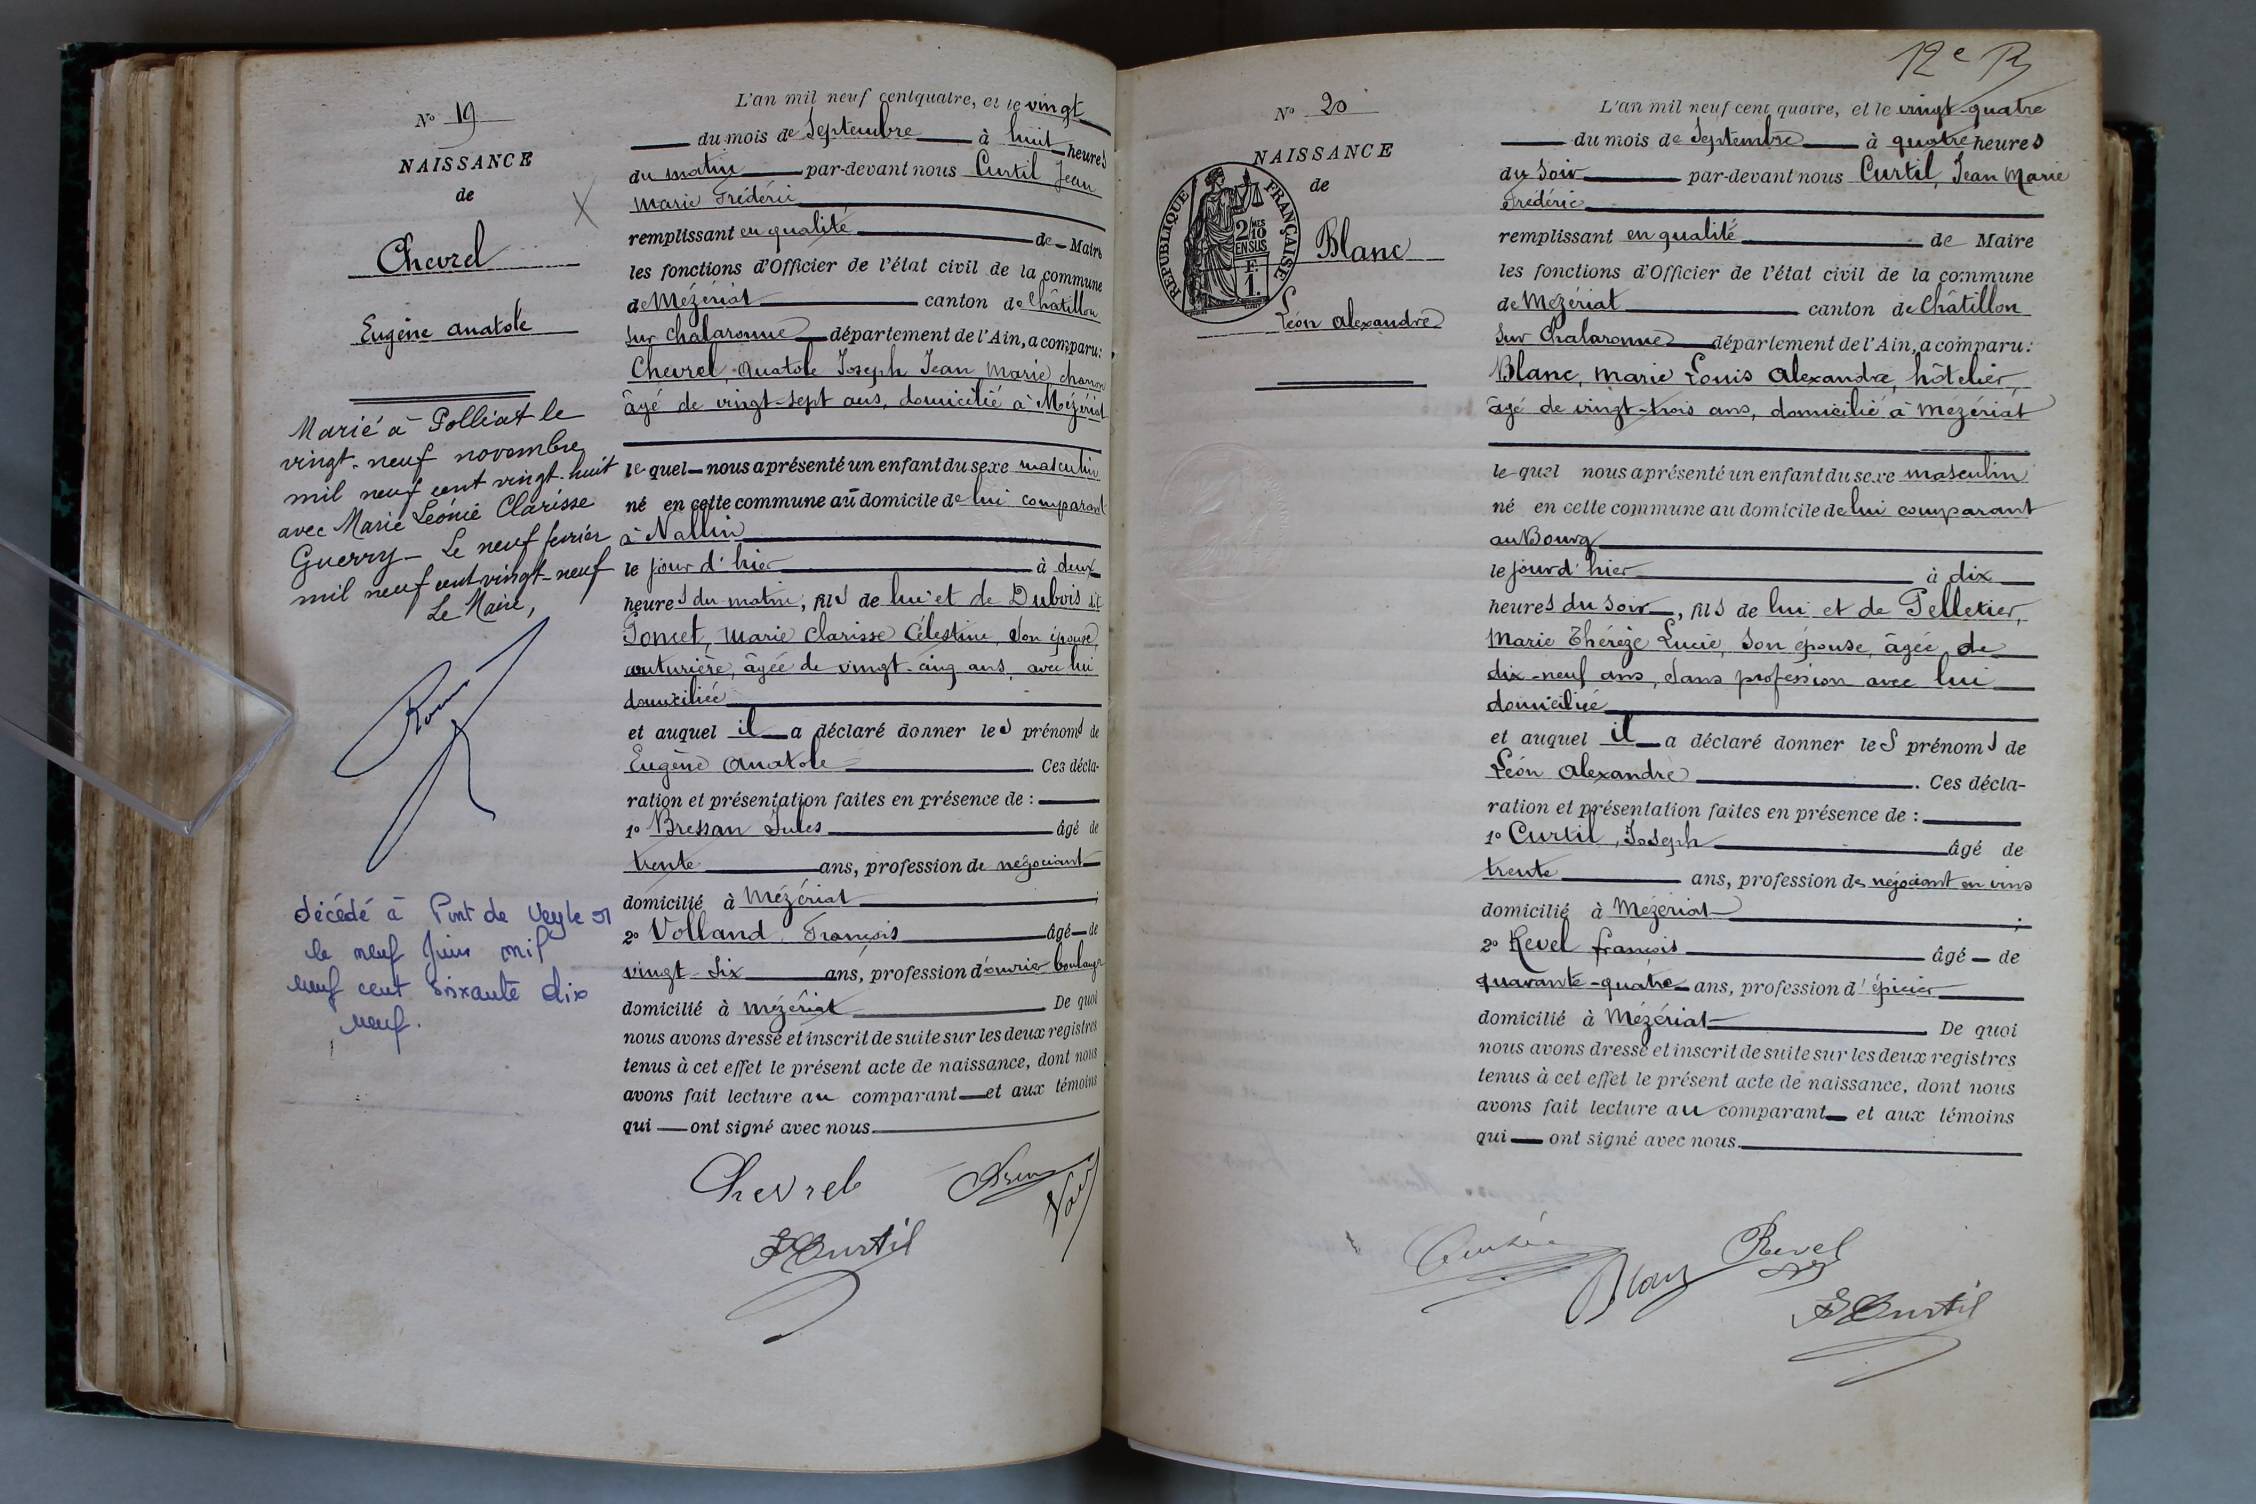 N° 19
NAISSANCE
de
Chevrel
Eugène Anatole
Marié à Polliat le
vingt-neuf novembre
mil neuf cent vingt-huit
avec Marie Léonie Clarisse
Guerry - Le neuf février
mil neuf cent vingt-neuf
Le Maire,
décédé à Pont de Veyle 01
le neuf Juin mil
neuf cent soixante dix
neuf.
L'an mil neuf cent quatre, et le vingt
du mois de Septembre à huit heures
du matin par-devant nous Curtil Jean
Marie Frédéric
remplissant en qualité de Maire
les fonctions d'Officier de l'état civil de la commune
de Mézériat canton de Châtillon
sur Chalaronne département de l'Ain, a comparu:
Chevrel, Anatole Joseph Jean Marie,
âgé de vingt-sept ans, domicilié à Mézériat
lequel nous a présenté un enfant du sexe masculin
né en cette commune au domicile de lui comparant
à Nallin
le jour d'hier à deux
heures du matin, fils de lui et de Dubois dit
Marie Clarisse Célestine, son épouse,
couturière, âgée de vingt-cinq ans, avec lui
domiciliée
et auquel il a déclaré donner les prénoms de
Eugène Anatole Ces décla-
ration et présentation faites en présence de :
1° Bressan Jules âgé de
trente ans, profession de négociant
domicilié à Mézériat ;
2° Volland François âgé de
vingt-six ans, profession d'ouvrier boulanger
domicilié à Mézériat De quoi
nous avons dressé et inscrit de suite sur les deux registres
tenus à cet effet le présent acte de naissance, dont nous
avons fait lecture au comparant et aux témoins
qui ont signé avec nous.
Chevrel
Curtil
12e
N° 20
NAISSANCE
de
RÉPUBLIQUE FRANÇAISE
2/10 MES
EN SUS
F.
1.
Blanc
Léon Alexandre
L'an mil neuf cent quatre, et le vingt-quatre
du mois de Septembre à quatre heures
du soir par-devant nous Curtil, Jean Marie
Frédéric
remplissant en qualité de Maire
les fonctions d'Officier de l'état civil de la commune
de Mézériat canton de Châtillon
sur Chalaronne département de l'Ain, a comparu:
Blanc, Marie Louis Alexandre, hôtelier,
âgé de vingt-trois ans, domicilié à Mézériat
lequel nous a présenté un enfant du sexe masculin
né en cette commune au domicile de lui comparant
au Bourg
le jour d'hier à dix
heures du soir, fils de lui et de Pelletier,
Marie Thérèze Lucie, son épouse, âgée de
dix-neuf ans, sans profession avec lui
domiciliée
et auquel il a déclaré donner les prénoms de
Léon Alexandre. Ces décla-
ration et présentation faites en présence de :
1° Curtil, Joseph âgé de
trente ans, profession de négociant en vins
domicilié à Mézériat ;
2° Revel François âgé de
quarante-quatre ans, profession d'épicier
domicilié à Mézériat De quoi
nous avons dressé et inscrit de suite sur les deux registres
tenus à cet effet le présent acte de naissance, dont nous
avons fait lecture au comparant et aux témoins
qui ont signé avec nous.
Revel
Blanc
Curtil